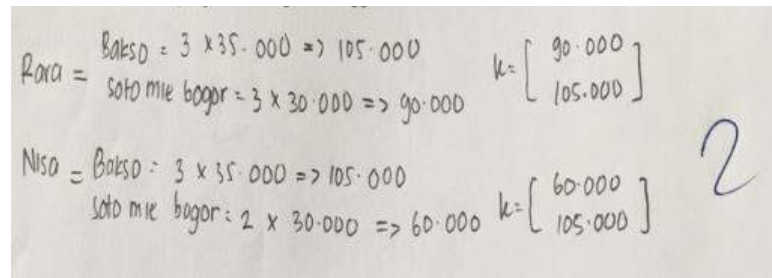 Rara = Bakso = 3 x 35.000 => 105.000
soto mie bogor = 3 x 30.000 => 90.000
k = [ 90.000
105.000 ]
Nisa = Bakso = 3 x 35.000 => 105.000
soto mie bogor = 2 x 30.000 => 60.000
k = [ 60.000
105.000 ]
2